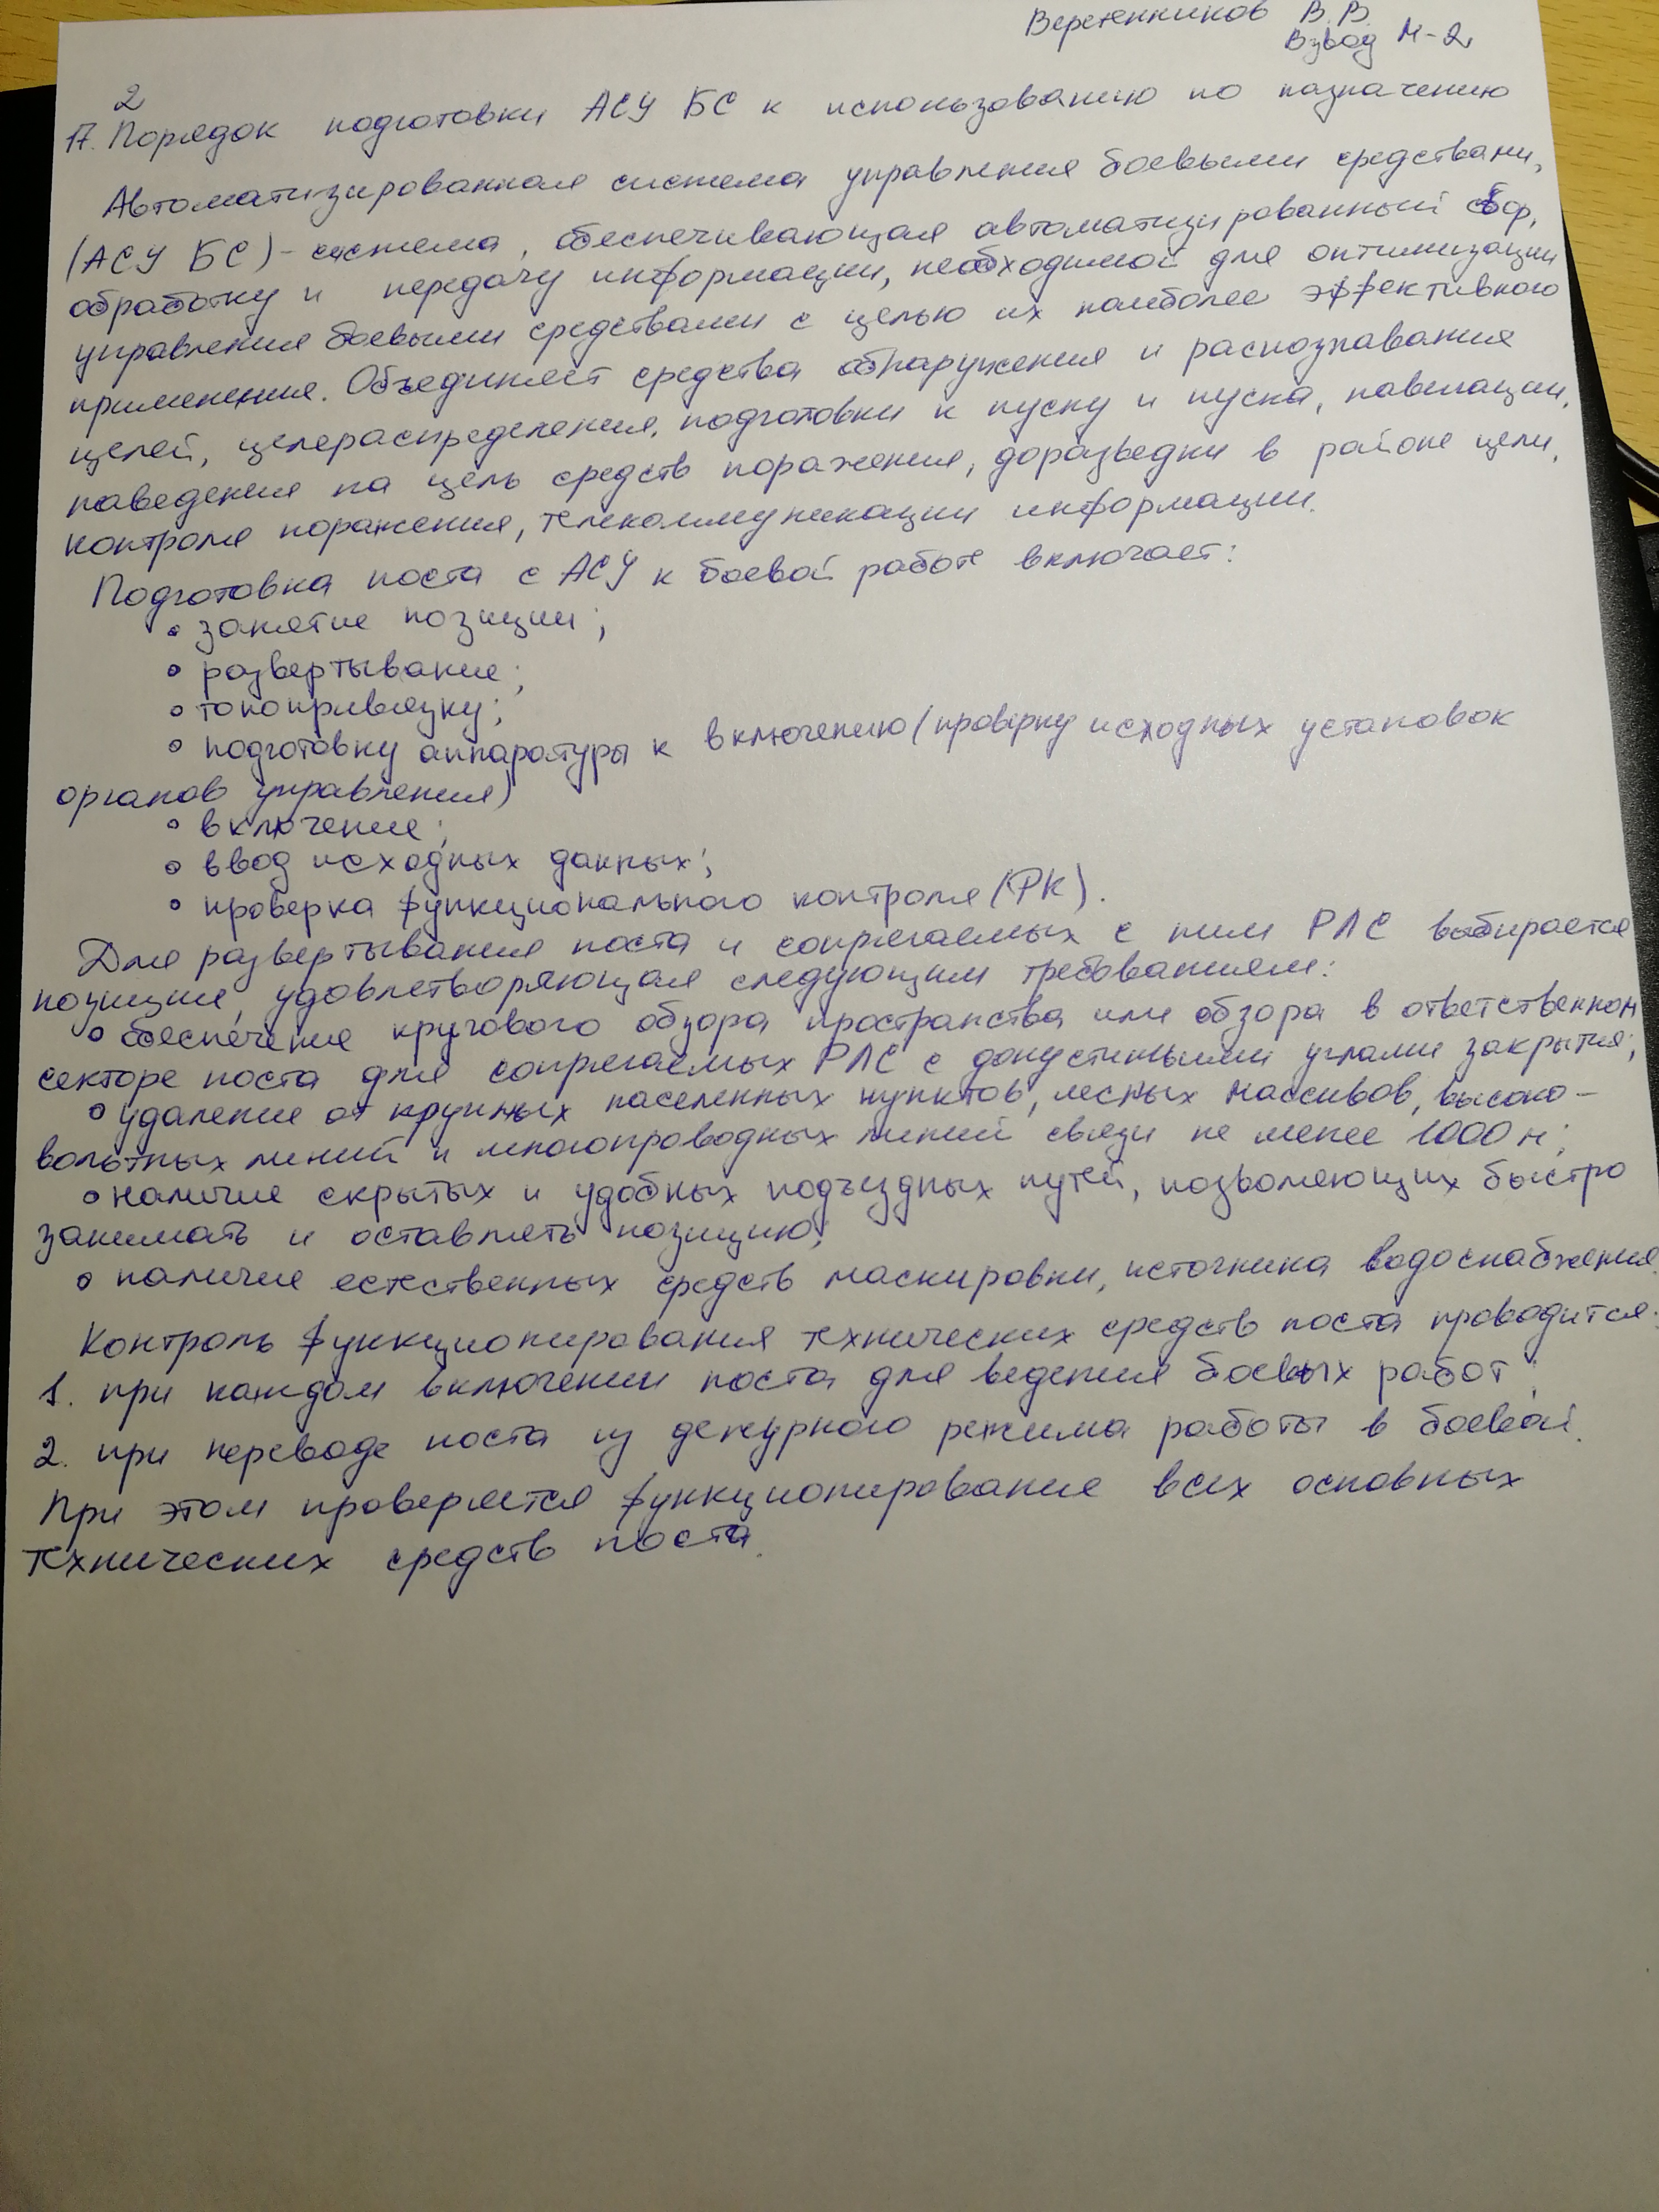 Веретенников В. В.
Взвод М-2
2
17. Порядок подготовки АСУ БС к использованию по назначению
Автоматизированная система управления боевыми средствами,
(АСУ БС) - система, обеспечивающая автоматизированный сбор,
обработку и передачу информации, необходимой для оптимизации
управления боевыми средствами с целью их наиболее эффективного
применения. Объединяет средства обнаружения и распознавания
целей, целераспределения, подготовки к пуску и пуска, навигации,
наведения на цель средств поражения, доразведки в районе цели,
контроля поражения, телекоммуникации информации.
Подготовка поста с АСУ к боевой работе включает:
• занятие позиции;
• развертывание;
• топопривязку;
• подготовку аппаратуры к включению (проверку исходных установок
органов управления)
• включение;
• ввод исходных данных;
• проверка функционального контроля (ФК).
Для развертывания поста и сопрягаемых с ним РЛС выбирается
позиция, удовлетворяющая следующим требованиям:
• обеспечение кругового обзора пространства или обзора в ответственном
секторе поста для сопрягаемых РЛС с допустимыми углами закрытия;
• удаление от крупных населенных пунктов, лесных массивов, высоко-
вольтных линий и многопроводных линий связи не менее 1000 м;
• наличие скрытых и удобных подъездных путей, позволяющих быстро
занимать и оставлять позицию;
• наличие естественных средств маскировки, источника водоснабжения.
Контроль функционирования технических средств поста проводится:
1. при каждом включении поста для ведения боевых работ;
2. при переводе поста из дежурного режима работы в боевой.
При этом проверяется функционирование всех основных
технических средств поста.